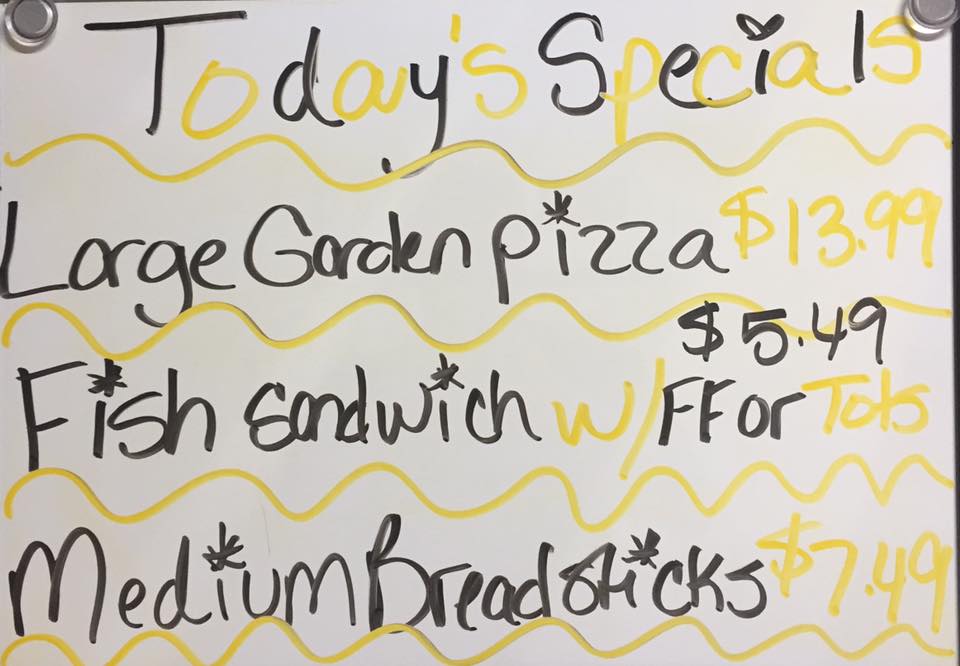 Today's Specials
Large Garden pizza $13.99
$5.49
Fish Sandwich w/FF or Tots
Medium Breadsticks $7.49